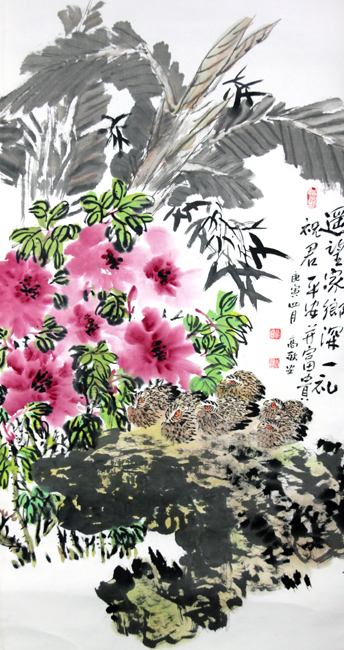 遥望家乡深一礼
祝君平安并富贵
庚寅四月